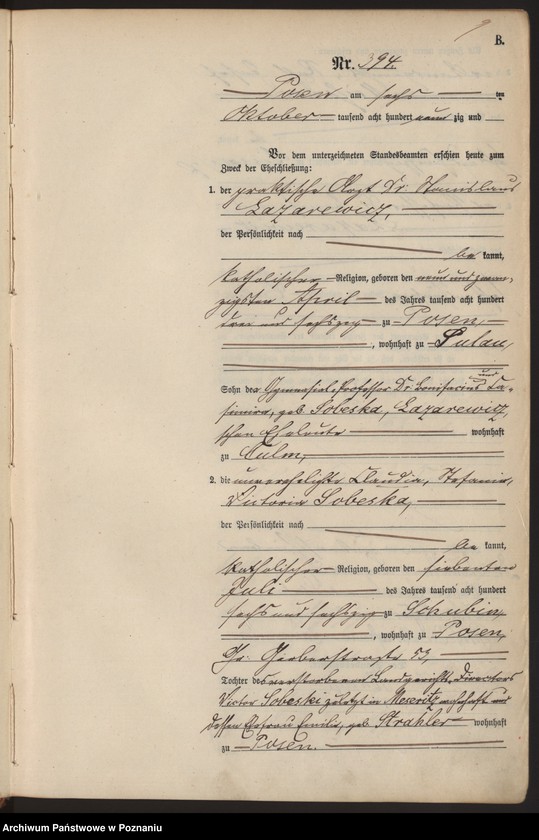 B.
Nr. 394.
Posen am sechs ten
Oktober tausend acht hundert neun zig und
Vor dem unterzeichneten Standesbeamten erschien heute zum
Zweck der Eheschließung:
1. der praktische Arzt Dr. Stanislaus
Lazarewicz,
der Persönlichkeit nach
be kannt,
katholischer Religion, geboren den neun und zwan-
zigsten April des Jahres tausend acht hundert
drei und sechszig zu Posen
, wohnhaft zu
Sohn des Gymnasial-Professor Dr. Bonifacius und Ca-
simira, geb. Sobeska, Lazarewicz-
schen Eheleute wohnhaft
zu Culm,
2. die unverehelichte Claudia, Stefania,
Victoria Sobeska,
der Persönlichkeit nach
be kannt,
katholischer Religion, geboren den siebenten
Juli des Jahres tausend acht hundert
sechs und sechszig zu Schubin,
, wohnhaft zu Posen,
Gr. Gerberstraße 53,
Tochter des verstorbenen Landgerichts-Directors
Victor Sobeski zuletzt in Meseritz wohnhaft und
dessen Ehefrau Emilie, geb. Strahler wohnhaft
zu Posen.
Archiwum Państwowe w Poznaniu